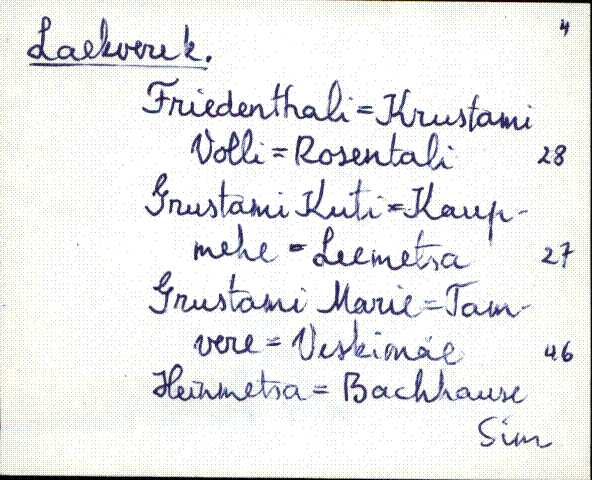 4
Laekvere k.
Friedenthali = Krustami
Volli = Rosentali 28
Grustami Kuti = Kaup-
mehe = Leemetsa 27
Grustami Marie = Tam-
vere = Veskimäe 46
Heinmetsa = Bachhause
Sim